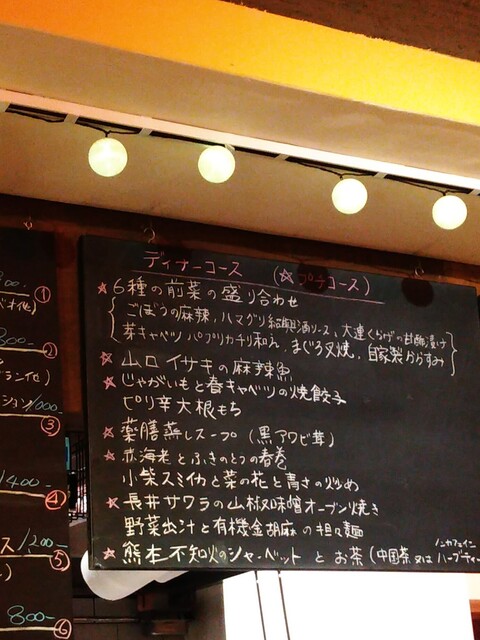 ディナーコース (☆プチコース)
☆6種の前菜の盛り合わせ
ごぼうの麻辣、ハマグリ紹興酒ソース、大連くらげの甘酢漬け
芽キャベツ パプリカチリ和え、まぐろ叉焼、自家製からすみ
☆山口イサキの麻辣魚
☆じゃがいもと春キャベツの焼餃子
ピリ辛大根もち
☆薬膳蒸しスープ (黒アワビ茸)
☆赤海老とふきのとうの春巻
小柴スミイカと菜の花と青さの炒め
☆長井サワラの山椒味噌オーブン焼き
野菜出汁と有機金胡麻の担々麺
ノンカフェイン
☆熊本不知火のシャーベット と お茶 (中国茶 又は ハーブティー
①
②
③
1400- ④
ス 1200- ⑤
800- ⑥